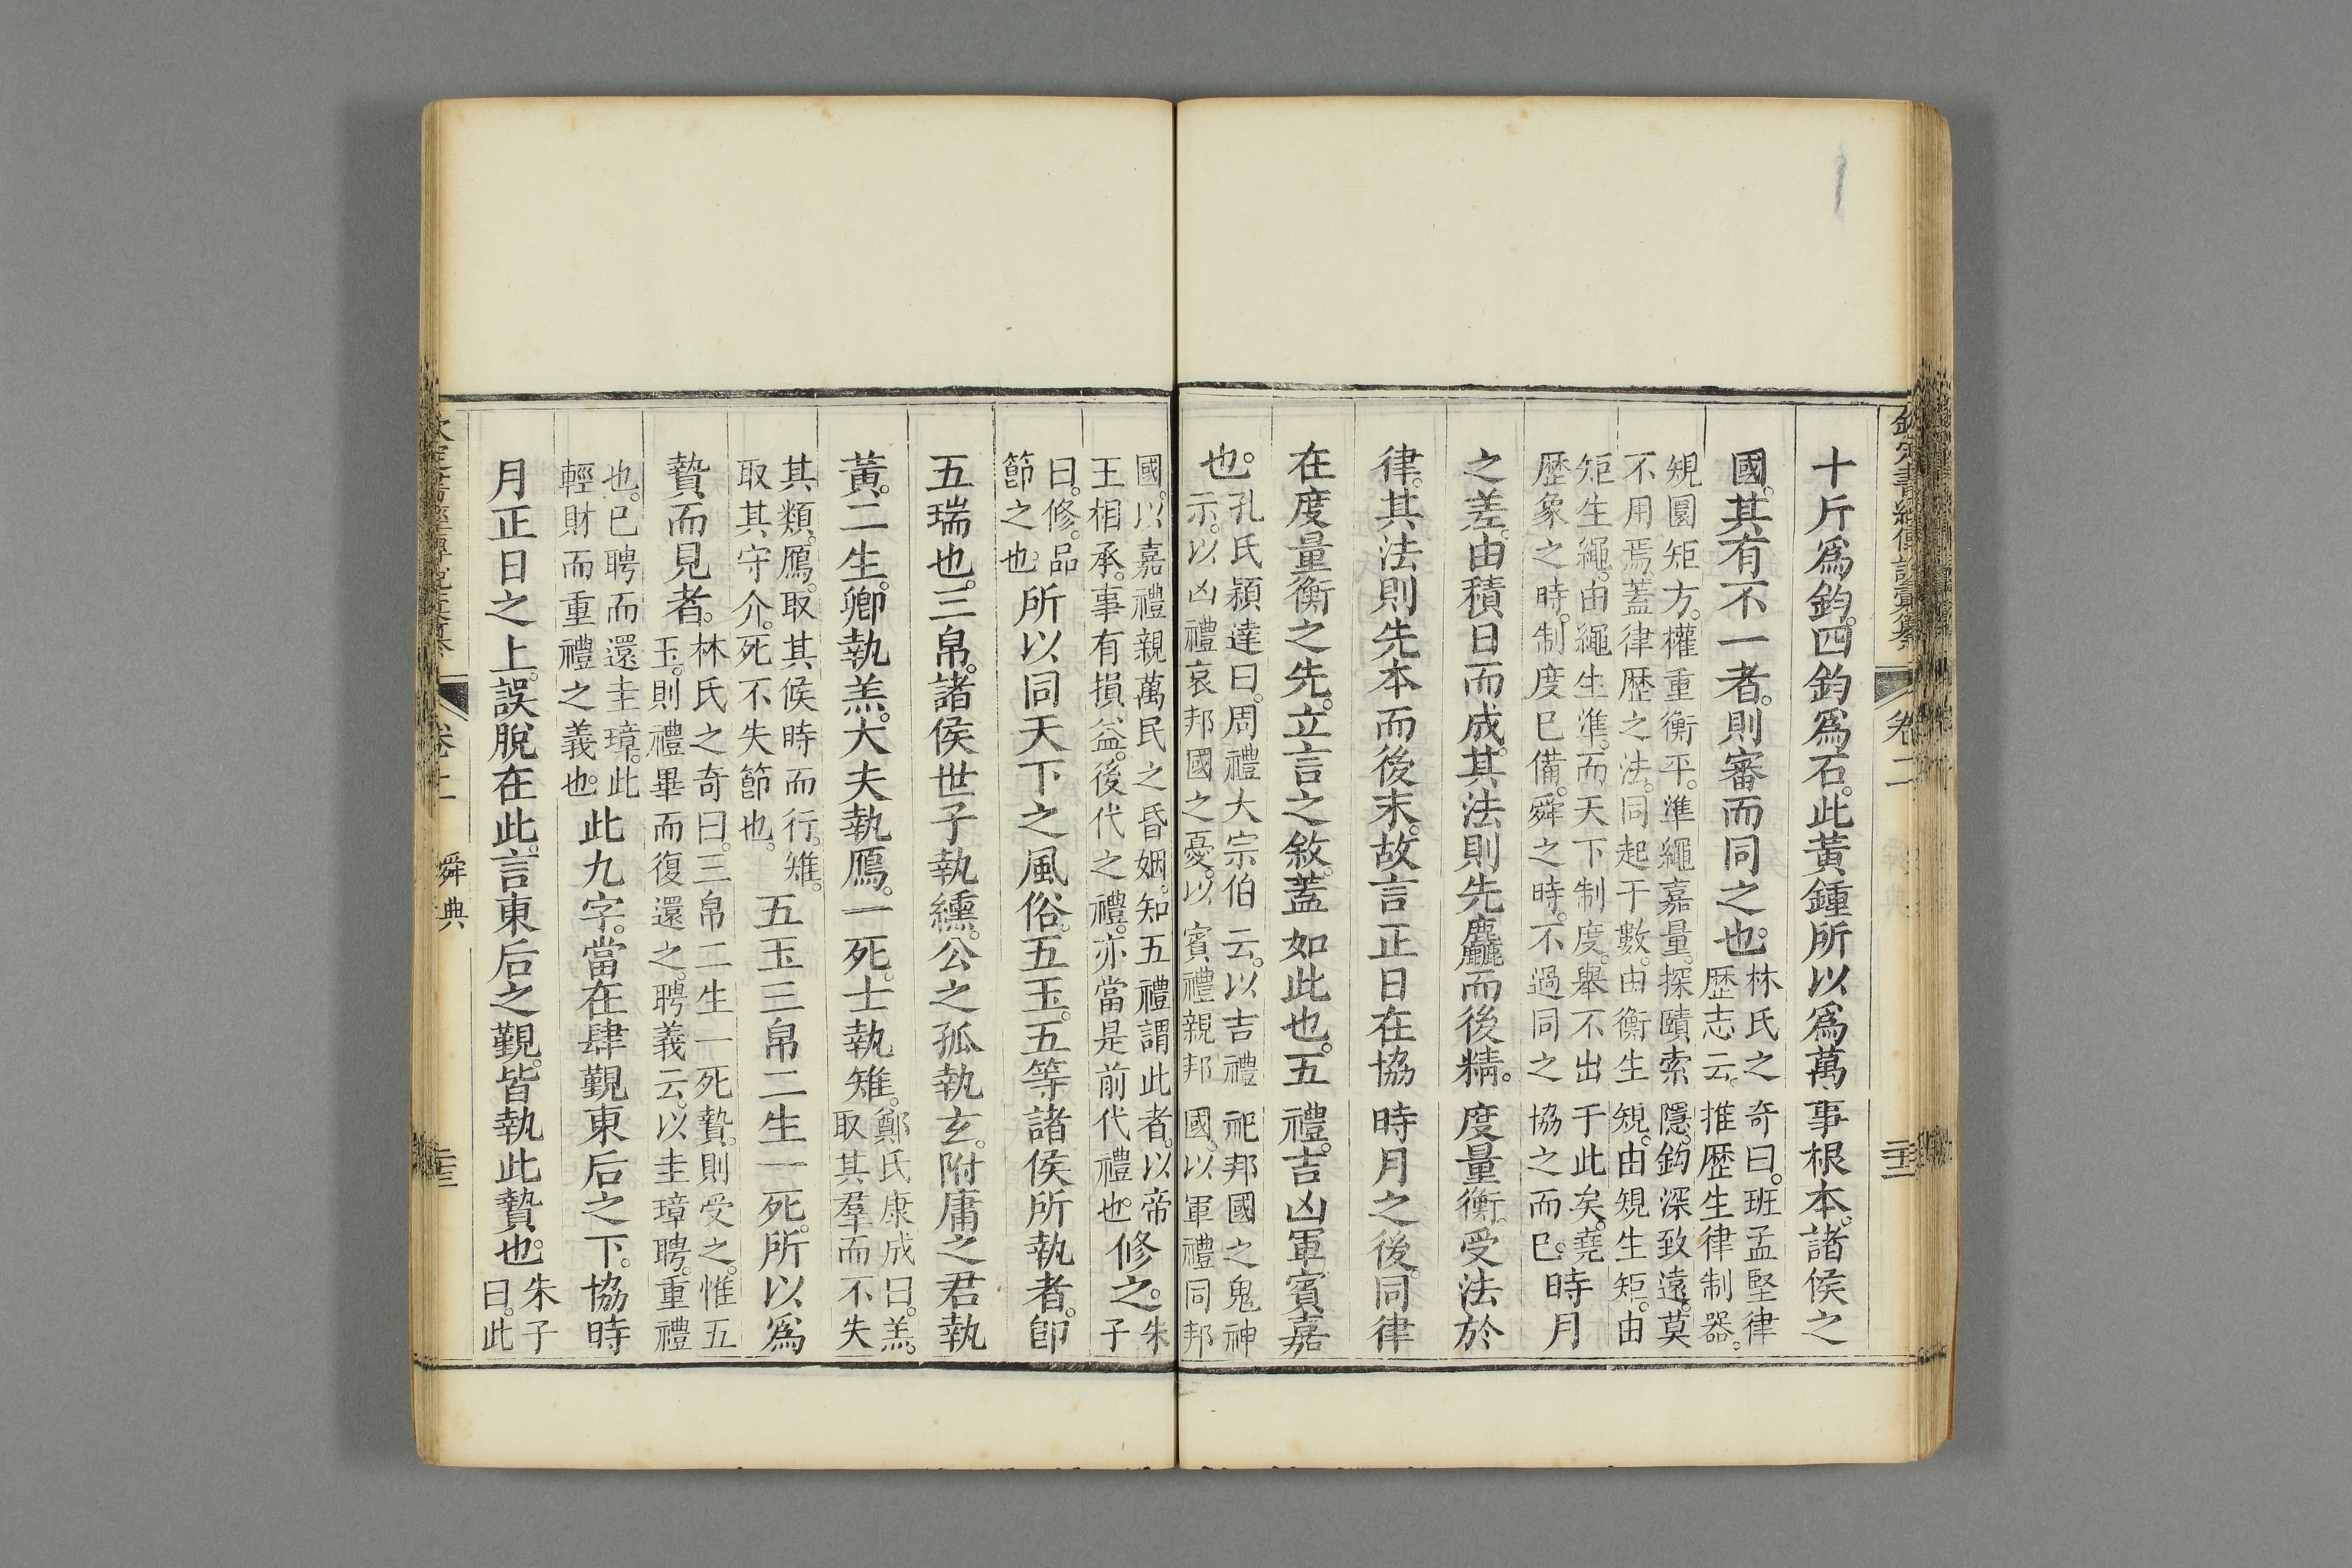 十斤爲鈞。四鈞爲石。此黃鍾所以爲萬事根本。諸侯之
國。其有不一者。則審而同之也。林氏之奇曰。班孟堅律
歷志云。推歷生律制器。
規圜矩方。權重衡平。準繩嘉量。探賾索隱。鈎深致遠。莫
不用焉。蓋律歷之法。同起于數。由衡生規。由規生矩。由
矩生繩。由繩生準。而天下制度。舉不出于此矣。堯
歷象之時。制度已備。舜之時。不過同之協之而已。時月
之差。由積日而成。其法則先麤而後精。度量衡。受法於
律。其法則先本而後末。故言正日在協時月之後。同律
在度量衡之先。立言之敘。蓋如此也。五禮。吉凶軍賓嘉
也。孔氏穎達曰。周禮大宗伯云。以吉禮祀邦國之鬼神
示。以凶禮哀邦國之憂。以賓禮親邦國。以軍禮同邦
國。以嘉禮親萬民之昏姻。知五禮謂此者。以帝
王相承。事有損益。後代之禮。亦當是前代禮也。修之。朱子
曰。修。品
節之也。所以同天下之風俗。五玉。五等諸侯所執者。卽
五瑞也。三帛。諸侯世子執纁。公之孤執玄。附庸之君執
黃。二生。卿執羔。大夫執鴈。一死。士執雉。鄭氏康成曰。羔。
取其羣而不失
其類。鴈。取其候時而行。雉。
取其守介。死不失節也。五玉三帛二生一死。所以爲
贄而見者。林氏之奇曰。三帛二生一死贄。則受之。惟五
玉。則禮畢而復還之。聘義云。以圭璋聘。重禮
也。已聘而還圭璋。此
輕財而重禮之義也。此九字。當在肆覲東后之下。協時
月正日之上。誤脫在此。言東后之覲。皆執此贄也。朱子
曰。此
卷二
舜典